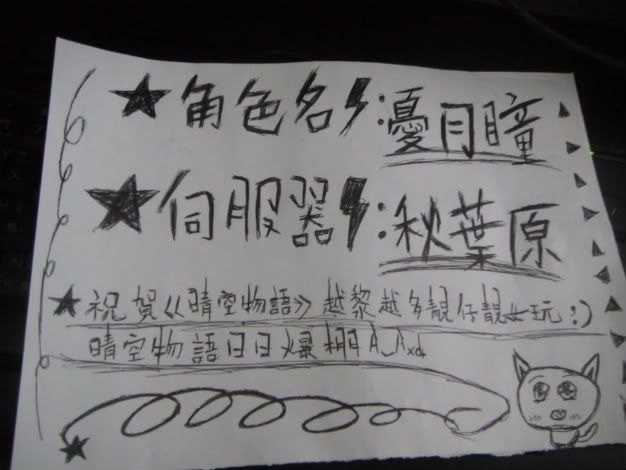 ★角色名:憂月瞳
★伺服器:秋葉原
★祝賀《晴空物語》越黎越多靚仔靚女玩;)
晴空物語日日爆棚A_Axd